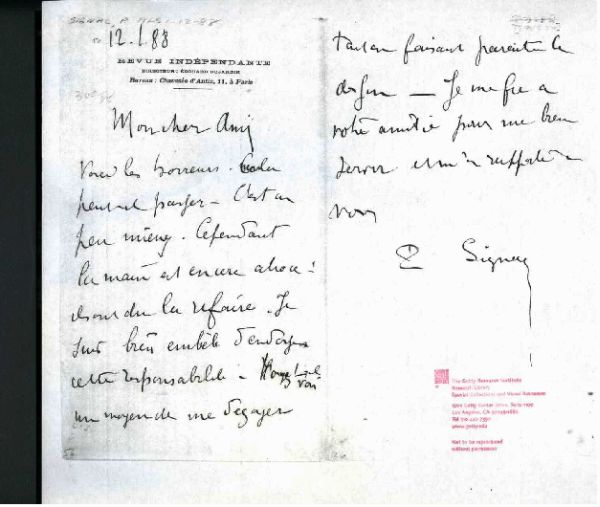 SIGNAC, P. ALS 1-12-88
12.1.88
REVUE INDÉPENDANTE
DIRECTEUR : ÉDOUARD DUJARDIN
Bureau : Chaussée d'Antin, 11, à Paris
Mon cher Ami
Voici les horreurs. Cela
peut-il passer – C'est un
peu mieux. Cependant
la main est encore atroce !
la refaire. Je
suis bien embêté d'endosser
cette responsabilité –
un moyen de me dégager
tout en faisant paraître le
dessin — Je me fie à
votre amitié pour me bien
servir et m'en rapporte à
vous
P Signac
The Getty Research Institute
Research Library
Special Collections and Visual Resources
1200 Getty Center Drive, Suite 1100
Los Angeles, CA
Tel 310 440 7390
www.getty.edu
Not to be reproduced
without permission